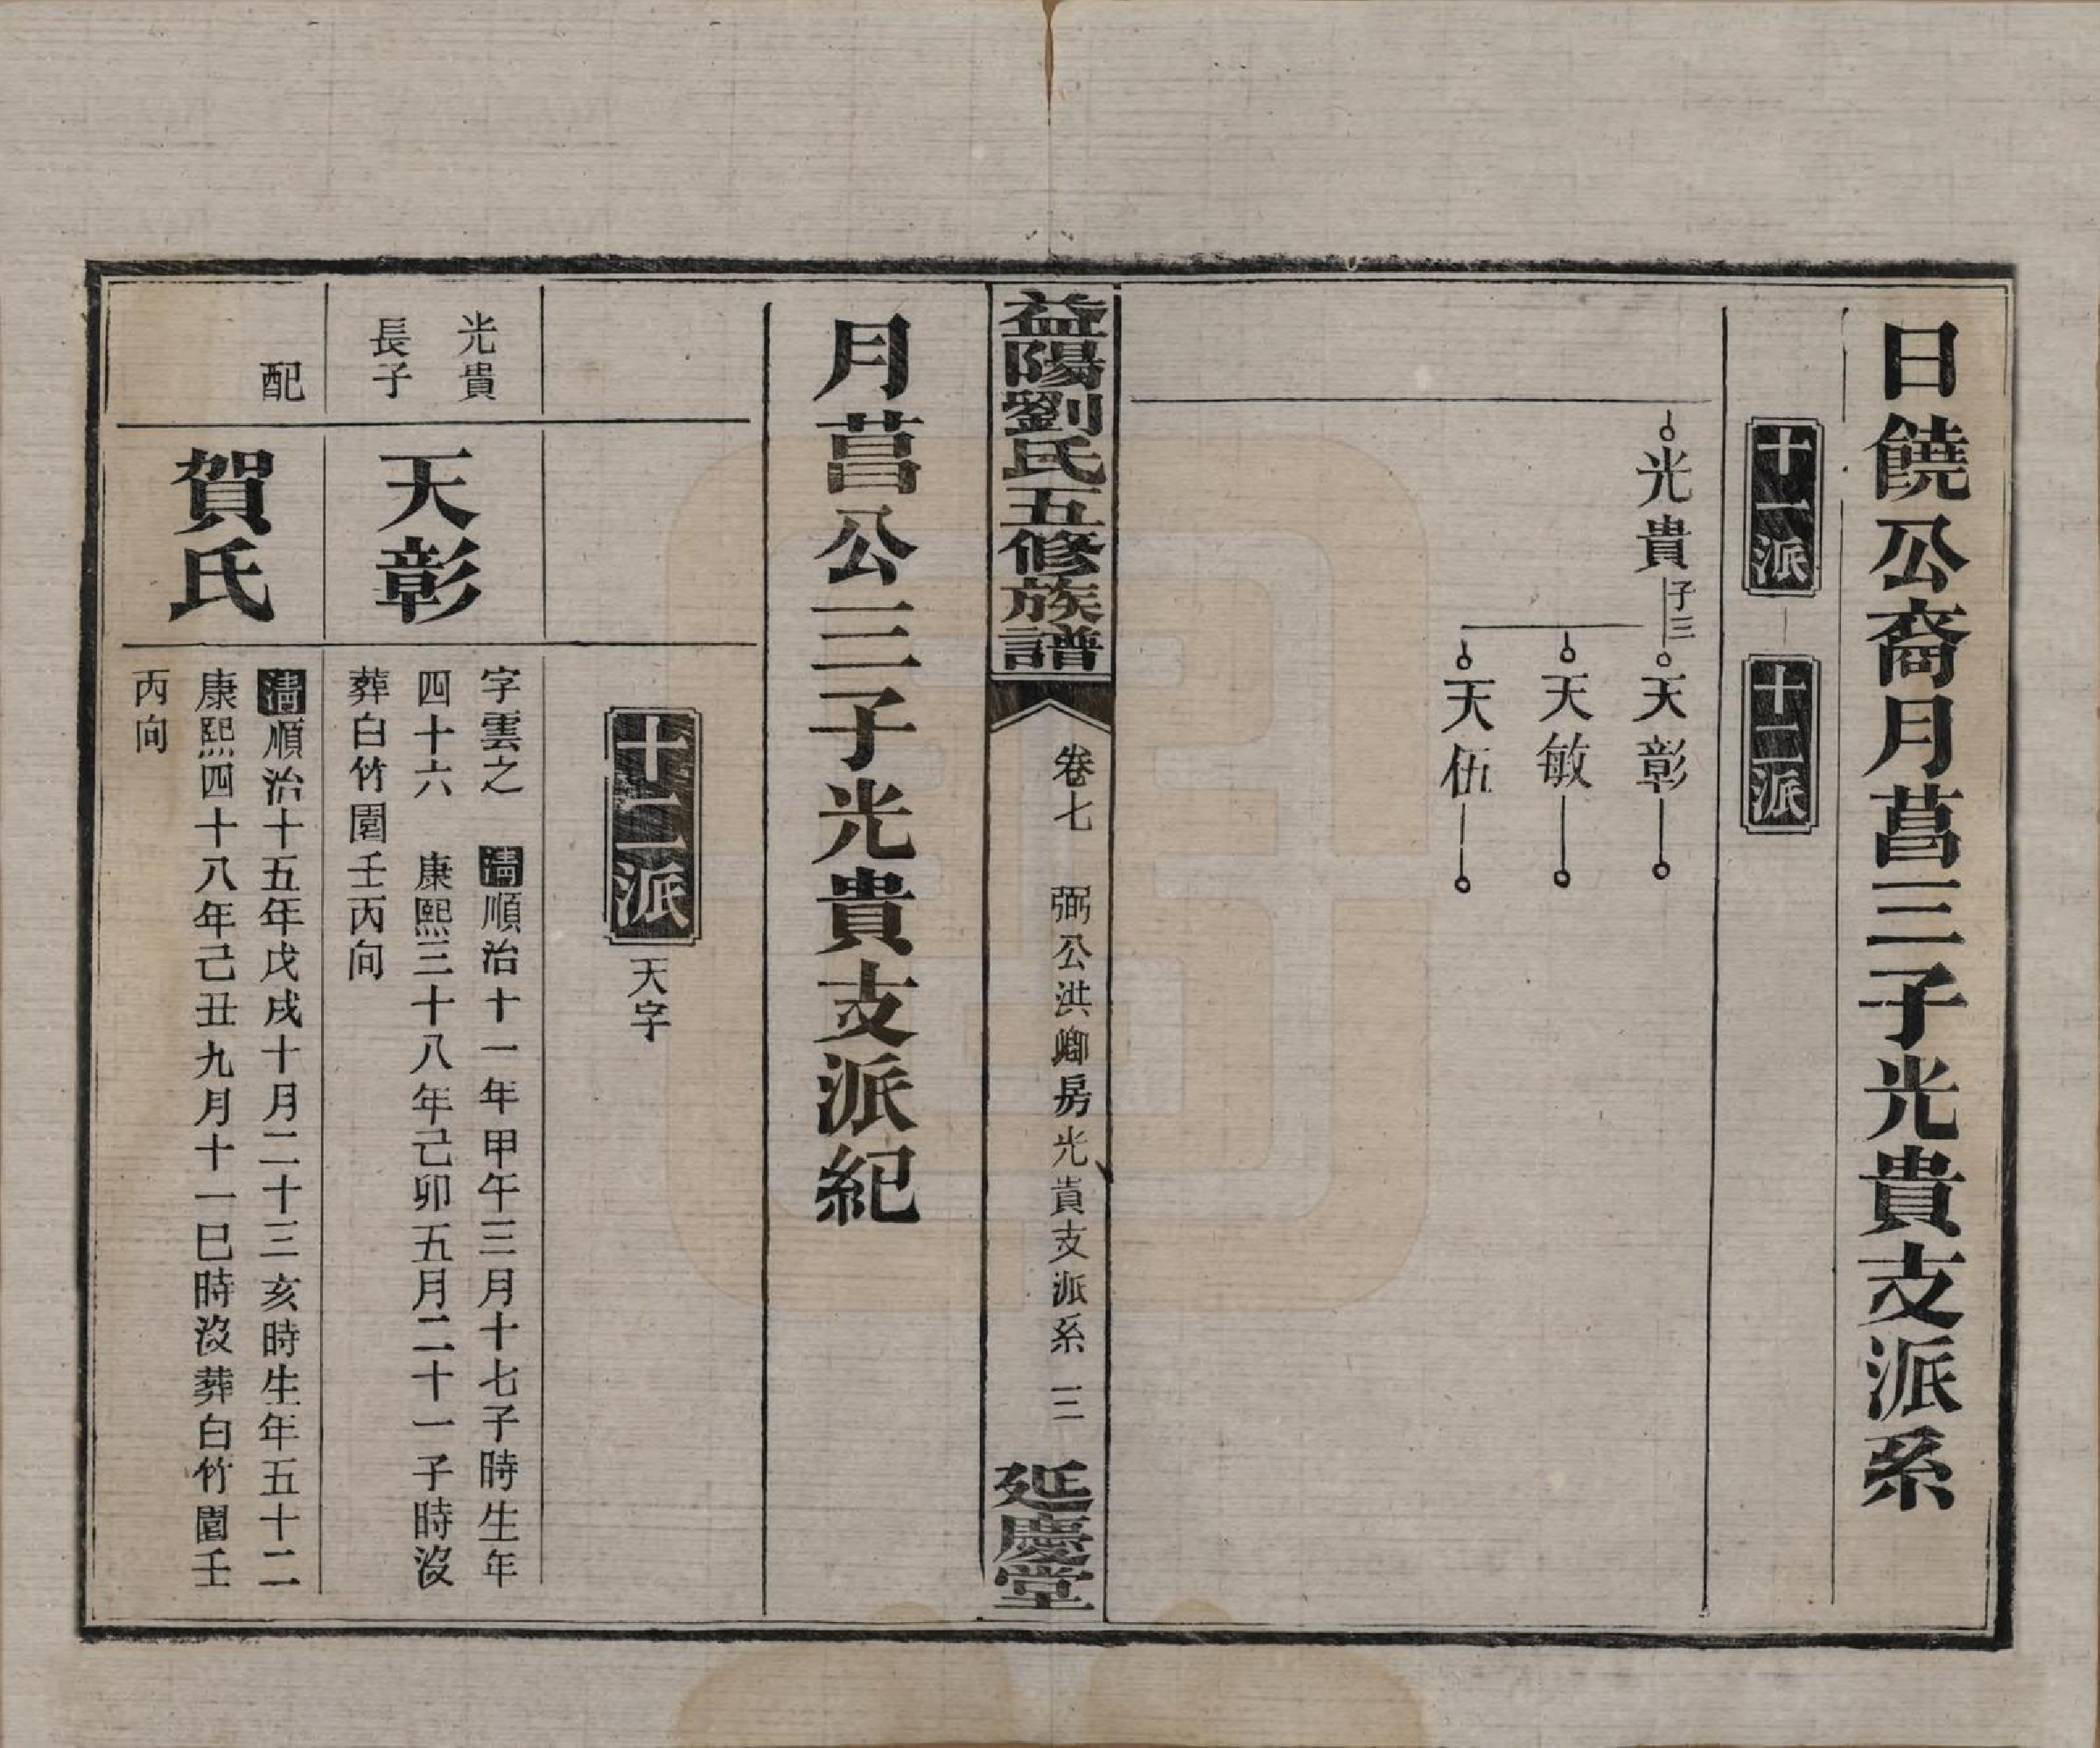 日饒公裔月菖三子光貴支派系
十一派
十二派
光貴 子三
天彰
天敏
天伍
益陽劉氏五修族譜
卷七 弼公洪卿房光貴支派系 三
延慶堂
月菖公三子光貴支派紀
十二派 天字
光貴
長子
天彰
字雲之 清順治十一年甲午三月十七子時生年
四十六 康熙三十八年己卯五月二十一子時沒
葬白竹園壬丙向
配
賀氏
清順治十五年戊戌十月二十三亥時生年五十二
康熙四十八年己丑九月十一巳時沒葬白竹園壬
丙向